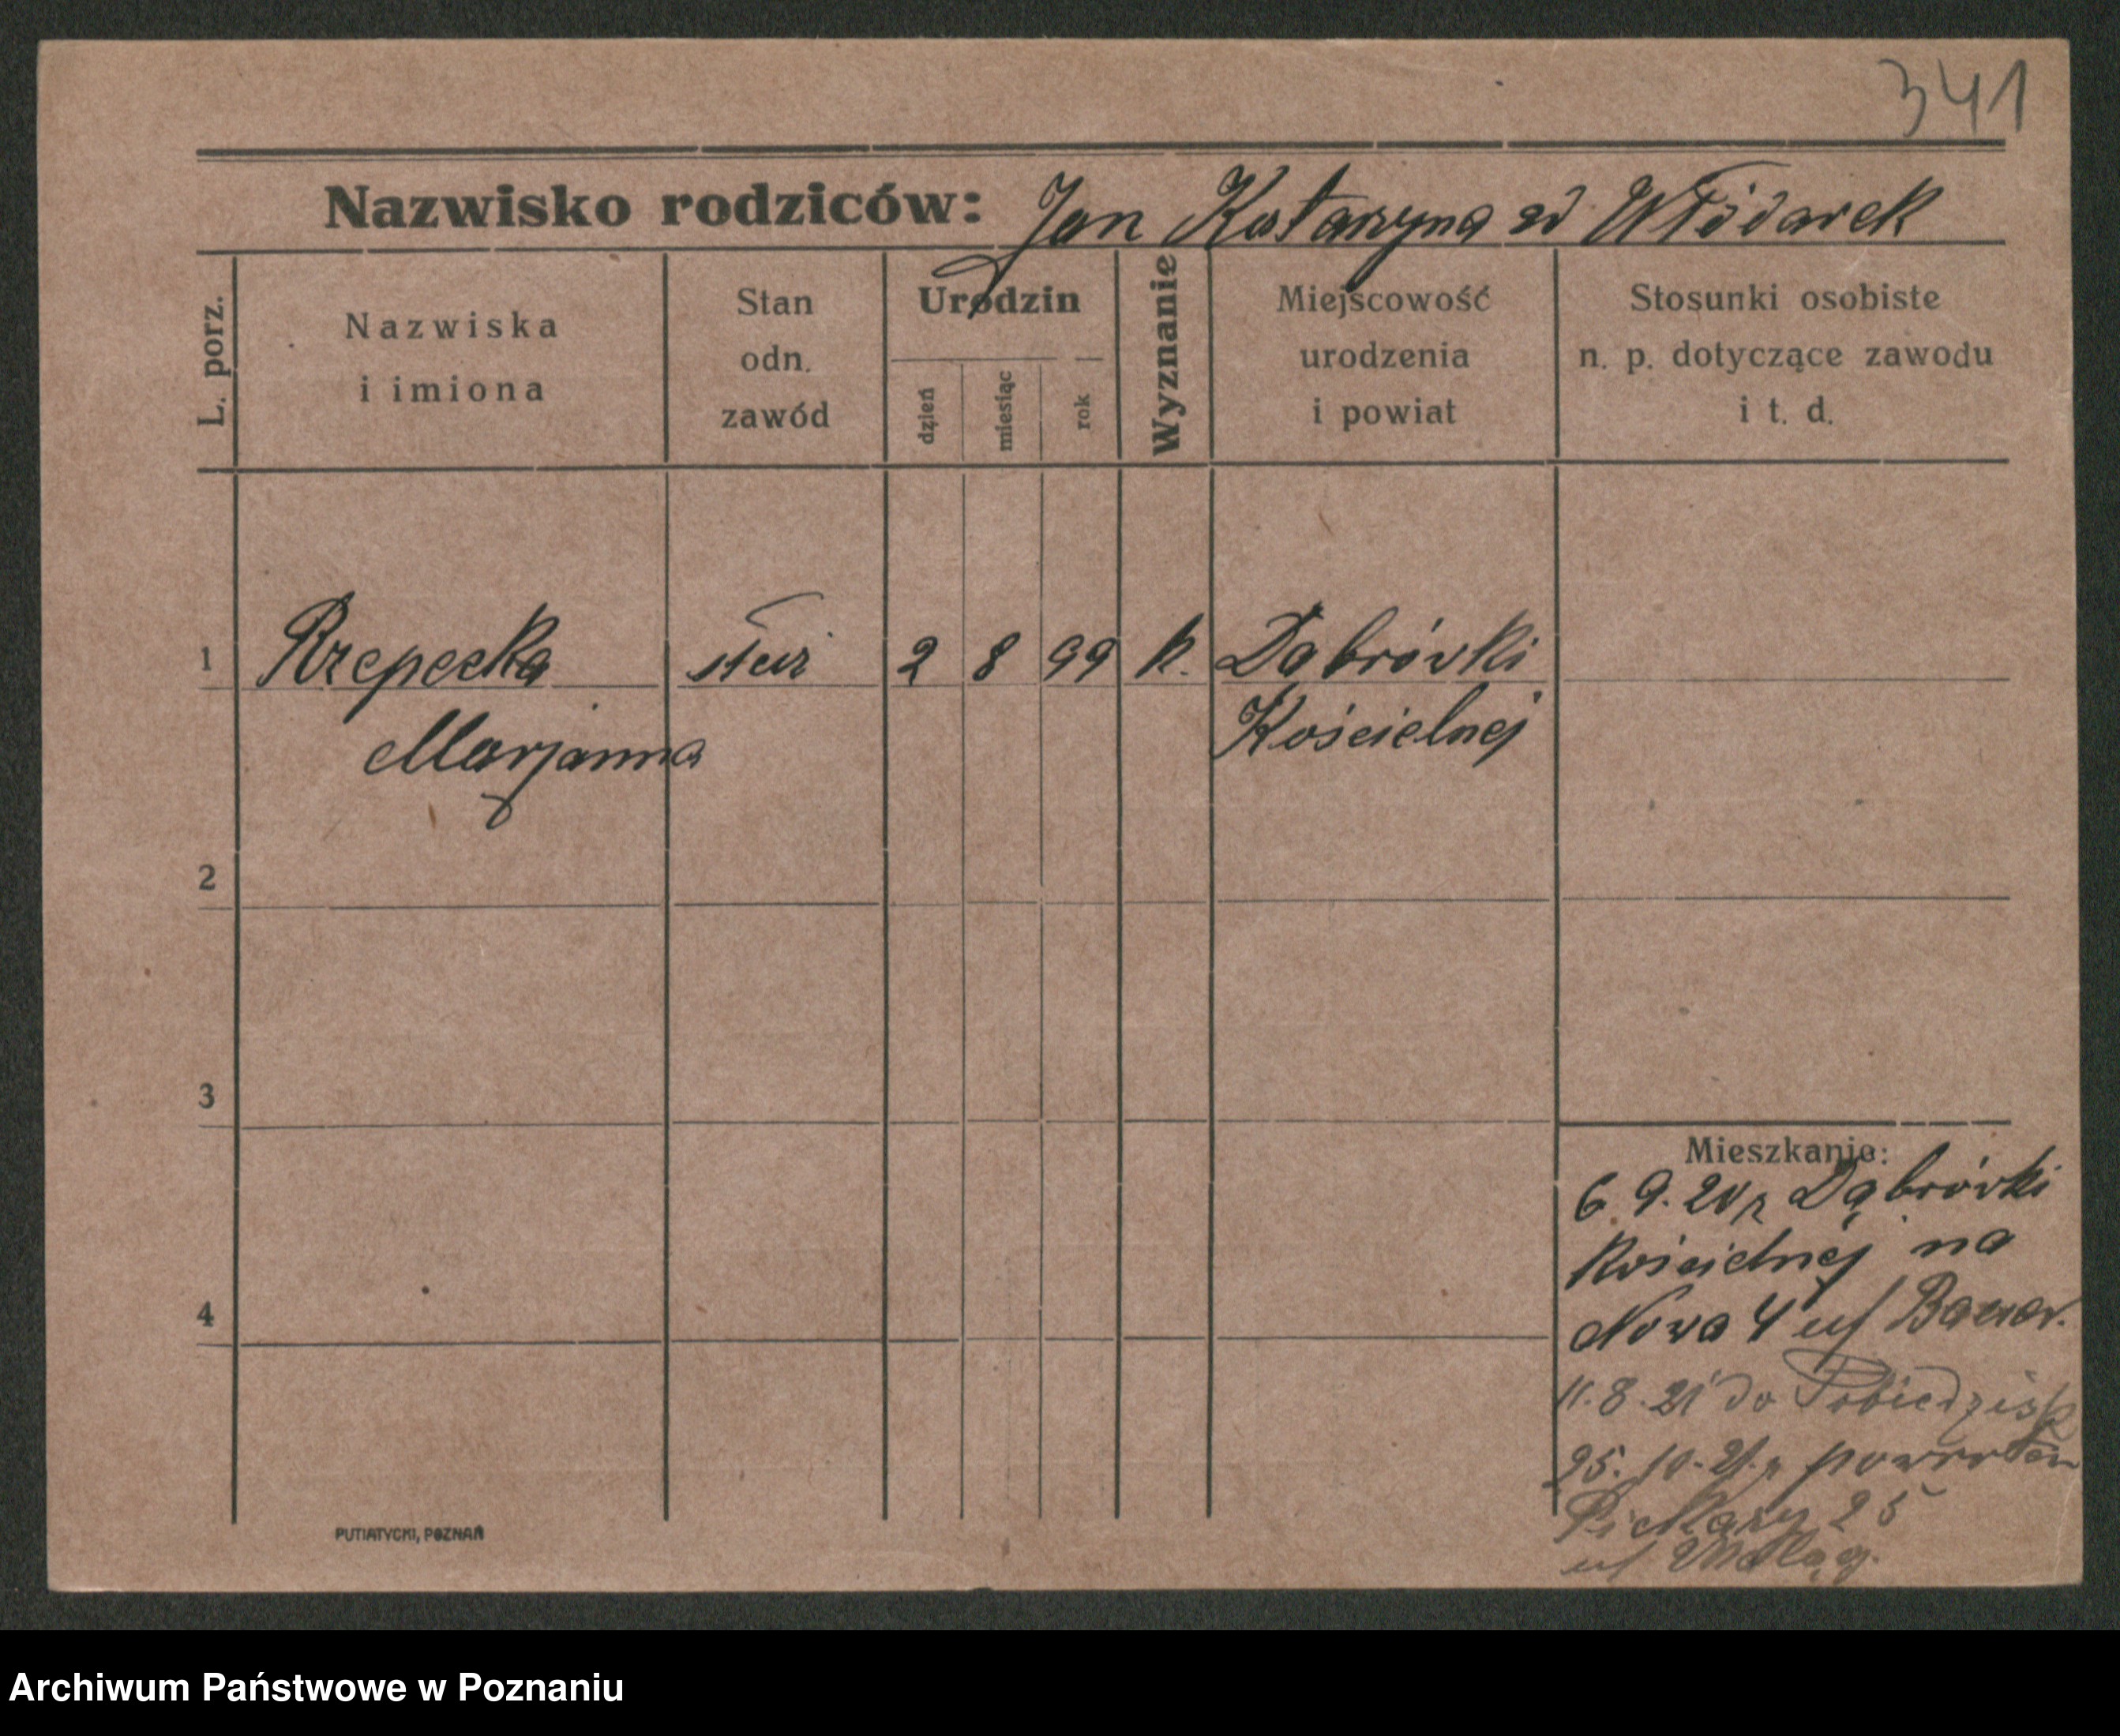 341
Nazwisko rodziców: Jan Katarzyna zd Włódarek
L. porz.
Nazwiska
i imiona
Stan
odn.
zawód
Urodzin
dzień
miesiąc
rok
Wyznanie
Miejscowość
urodzenia
i powiat
Stosunki osobiste
n. p. dotyczące zawodu
i t. d.
1 Rzepecka 2 8 99 k. Dąbrówki
Marjanna Kościelnej
2
3
4
Mieszkanie:
6. 9. 20 z Dąbrówki
Kościelnej na
Nowa 4 u/
11. 8. 21 do Pobiedzisk
25. 10. 21 z powrotem
Piekary 25
u/
PUTIATYCKI, POZNAŃ
Archiwum Państwowe w Poznaniu